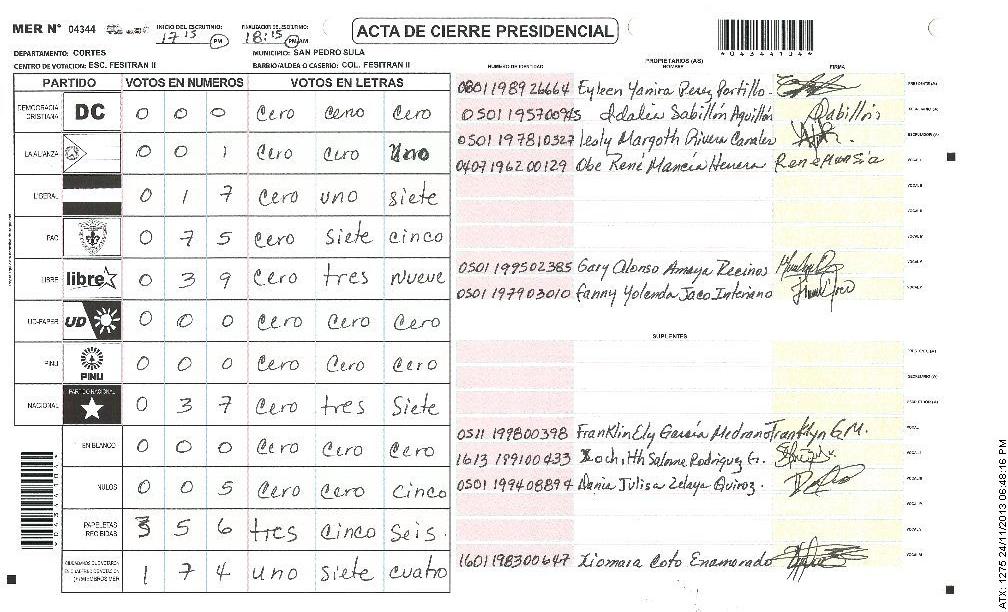 MER N° 04344
INICIO DEL ESCRUTINIO: 17:15 PM
FINALIZACION DE ESCRUTINIO: 18:15 PM AM
ACTA DE CIERRE PRESIDENCIAL
0 4 3 4 4 1 0 4 3 4 4
DEPARTAMENTO: CORTES
MUNICIPIO: SAN PEDRO SULA
CENTRO DE VOTACION: ESC. FESITRAN II
BARRIO/ALDEA O CASERIO: COL. FESITRAN II
PARTIDO VOTOS EN NUMEROS VOTOS EN LETRAS
DEMOCRACIA CRISTIANA DC 0 0 0 Cero Cero Cero
LA ALIANZA 0 0 1 Cero Cero Uno
LIBERAL 0 1 7 Cero uno siete
PAC 0 7 5 Cero siete cinco
LIBRE libre 0 3 9 Cero tres Nueve
UD-FAPER UD 0 0 0 Cero Cero Cero
PINU PINU 0 0 0 Cero Cero Cero
NACIONAL PARTIDO NACIONAL 0 3 7 Cero tres Siete
EN BLANCO 0 0 0 Cero Cero Cero
NULOS 0 0 5 Cero Cero Cinco
PAPELETAS RECIBIDAS 3 5 6 tres Cinco Seis.
1 7 4 uno siete cuatro
PROPIETARIOS (AS)
NUMERO DE IDENTIDAD NOMBRE FIRMA
0801198926664 Eyleen Yanira Perez Portillo PRESIDENTE (A)
0501195700945 Idalia Sabillón Aguillón Sabillón SECRETARIO (A)
0501197810327 Lesly Margoth Rivera Canales ESCRUTADOR (A)
0407196200129 Obe René Mancía Herrera René Mansia VOCAL I
0501199502385 Gary Alonso Amaya Recinos
0501197903010 Fanny Yolenda Jaco Interiano
SUPLENTES
PRESIDENTE (A)
SECRETARIO (A)
ESCRUTADOR (A)
0511199800398 Franklin Ely García Medrano Franklyn G.M. VOCAL I
1613189100433 Xochitth Salome Rodriguez G.
0501199408894 Dania Julisa Zelaya Quiroz.
1601198300647 Xiomara Coto Enamorado
ATX: 1275 24/11/2013 06:48:16 PM